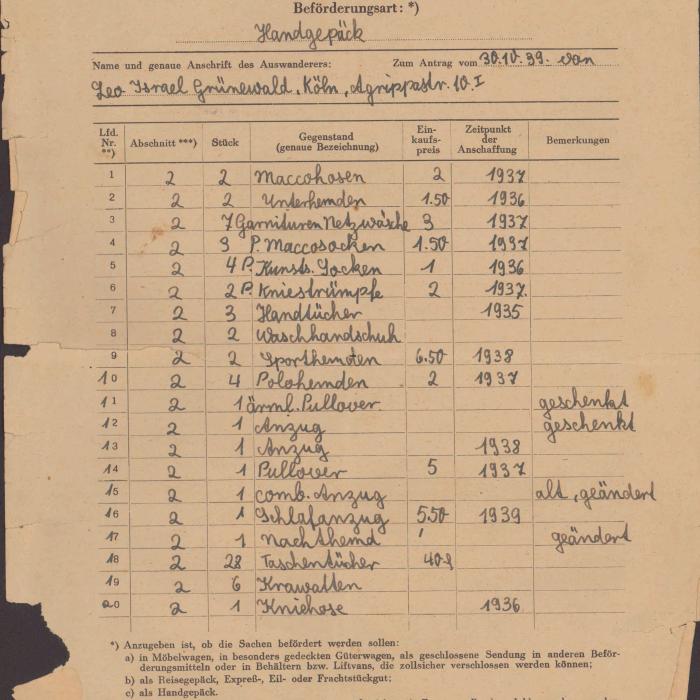 Beförderungsart: *)
Handgepäck
Name und genaue Anschrift des Auswanderers: Zum Antrag vom 30.10.39. von
Leo Israel Grünewald, Köln, Agrippastr. 10.I
Lfd. Nr. **) Abschnitt ***) Stück Gegenstand (genaue Bezeichnung) Ein-kaufs-preis Zeitpunkt der Anschaffung Bemerkungen
1 2 2 Maccohosen 2 1937
2 2 2 Unterhemden 1.50 1936
3 2 7 Garnituren Netzwäsche 3 1937
4 2 3 P. Maccosocken 1.50 1937
5 2 4 P. Kunsts. Socken 1 1936
6 2 2 P. Kniestrümpfe 2 1937.
7 2 3 Handtücher 1935
8 2 2 Waschhandschuh
9 2 2 Sporthemden 6.50 1938
10 2 4 Polohemden 2 1937
11 2 1 ärml. Pullover. geschenkt
12 2 1 Anzug geschenkt
13 2 1 Anzug 1938
14 2 1 Pullover 5 1937
15 2 1 comb. Anzug alt, geändert
16 2 1 Schlafanzug 5.50 1939
17 2 1 Nachthemd geändert
18 2 28 Taschentücher 40
19 2 6 Krawatten
20 2 1 Kniehose 1936
*) Anzugeben ist, ob die Sachen befördert werden sollen:
a) in Möbelwagen, in besonders gedeckten Güterwagen, als geschlossene Sendung in anderen Beför-
derungsmitteln oder in Behältern bzw. Liftvans, die zollsicher verschlossen werden können;
b) als Reisegepäck, Expreß-, Eil- oder Frachtstückgut;
c) als Handgepäck.